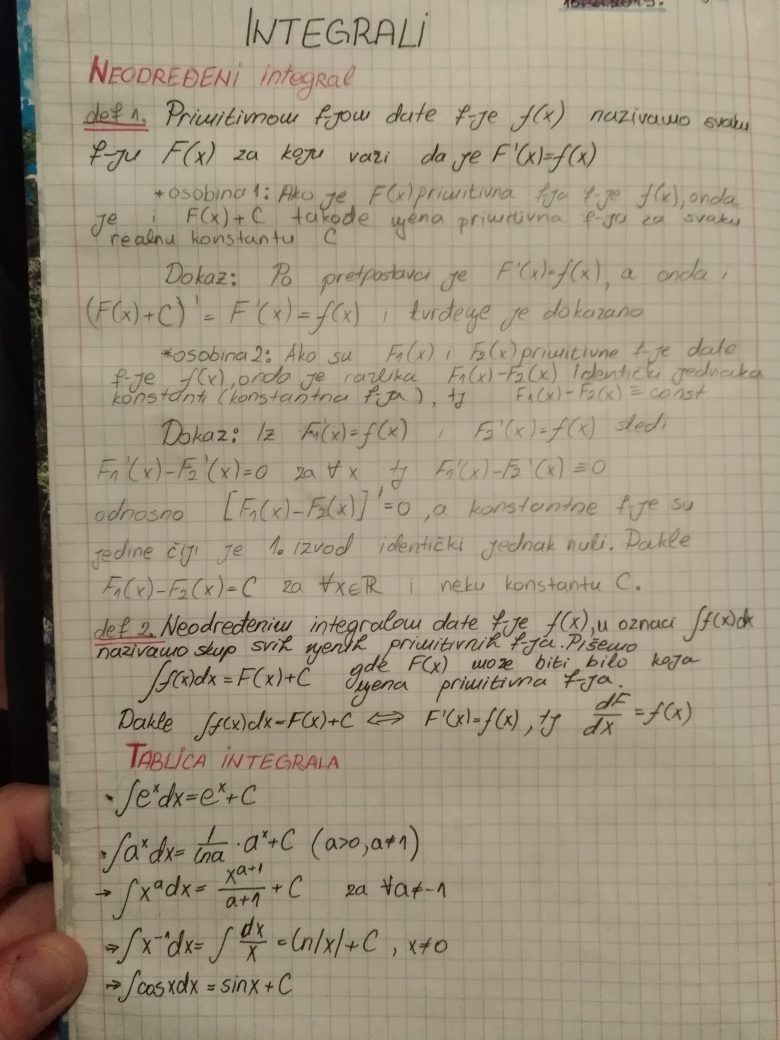 INTEGRALI
NEODREĐENI integral
def 1. Primitivnom f-jom date f-je f(x) nazivamo svaku
f-ju F(x) za koju vazi da je F'(x)=f(x)
*osobina 1: Ako je F(x) primitivna f-ja f-je f(x), onda
je i F(x)+C takođe njena primitivna f-ja za svaku
realnu konstantu C
Dokaz: Po pretpostavci je F'(x)=f(x), a onda i
(F(x)+C)' = F'(x) = f(x) i tvrđenje je dokazano
*osobina 2: Ako su F₁(x) i F₂(x) primitivne f-je date
f-je f(x), onda je razlika F₁(x)-F₂(x) identički jednaka
konstanti (konstantna f-ja), tj F₁(x)-F₂(x)≡const
Dokaz: Iz F₁'(x)=f(x) i F₂'(x)=f(x) sledi
F₁'(x)-F₂'(x)=0 za ∀x tj F₁'(x)-F₂'(x)≡0
odnosno [F₁(x)-F₂(x)]'=0, a konstantne f-je su
jedine čiji je 1. izvod identički jednak nuli. Dakle
F₁(x)-F₂(x)=C za ∀x∈ℝ i neku konstantu C.
def 2. Neodređenim integralom date f-je f(x), u oznaci ∫f(x)dx
nazivamo skup svih njenih primitivnih f-ja. Pišemo
∫f(x)dx = F(x)+C gde F(x) moze biti bilo koja
njena primitivna f-ja.
Dakle ∫f(x)dx=F(x)+C ⟺ F'(x)=f(x), tj dF/dx = f(x)
TABLICA INTEGRALA
• ∫eˣdx=eˣ+C
• ∫aˣdx= 1/lna · aˣ+C (a>0, a≠1)
→ ∫xᵃdx= xᵃ⁺¹/a+1 + C za ∀a≠-1
→ ∫x⁻¹dx= ∫dx/x = ln|x|+C, x≠0
→ ∫cosxdx = sinx+C